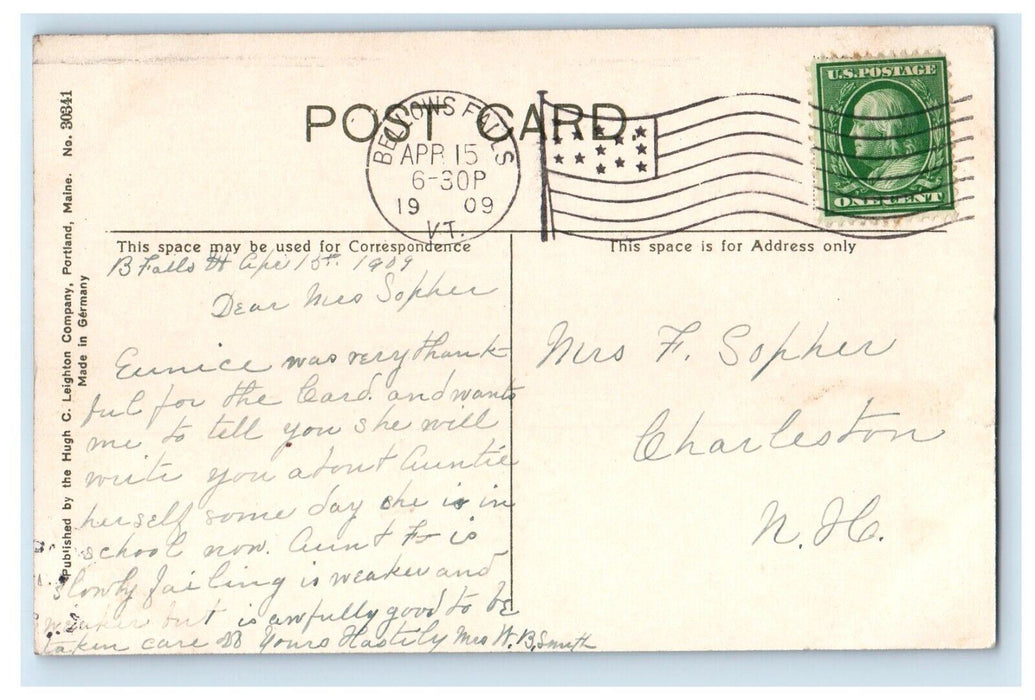 POST CARD.
BELLOWS FALLS
APR 15
6-30P
19 09
VT.
U.S. POSTAGE
ONE CENT
Published by the Hugh C. Leighton Company, Portland, Maine. No. 30341
Made in Germany
This space may be used for Correspondence
This space is for Address only
B Falls Vt Apr 15th 1909
Dear Mrs Sopher
Eunice was very thank-
ful for the Card. and wants
me to tell you she will
write you about Auntie
herself some day she is in
school now. Aunt F- is
slowly failing is weaker and
weaker but is awfully good to be
taken care of Yours Hastily Mrs W. B. Smith
Mrs F. Sopher
Charleston
N. H.